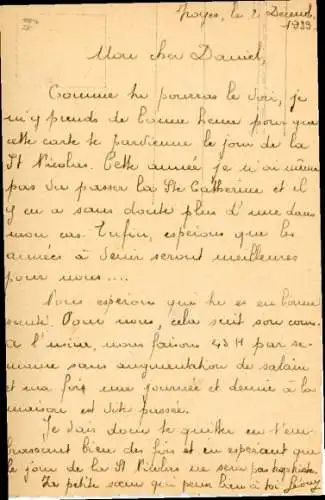 Troyes, le 2 Décemb.
1939.
Mon cher Daniel,
Comme tu pourras le voir, je
m'y prends de bonne heure pour que
cette carte te parvienne le jour de la
St Nicolas. Cette année je n'ai même
pas vu passer la Ste Catherine et il
y en a sans doute plus d'une dans
mon cas. Enfin, espérons que les
années à venir seront meilleures
pour nous....
Nous espérons que tu es en bonne
santé. Pour nous, cela suit son cours
à l'usine, nous faisons 48 H par se-
maine sans augmentation de salaire
et ma fois une journée et demie à la
maison est vite passée.
Je vais donc te quitter en t'em-
brassant bien des fois et en espérant que
le jour de la St Nicolas ne sera pas trop triste.
Ta petite sœur qui pense bien à toi